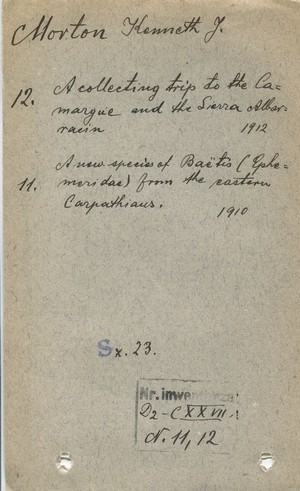 Morton Kenneth J.
12. A collecting trip to the Ca-
margue and the Sierra Albar-
racin 1912
11. A new species of Baëtis (Ephe-
meridae) from the eastern
Carpathians.
1910
Sx. 23.
Nr. inven
D2-C XXVII.
N. 11, 12